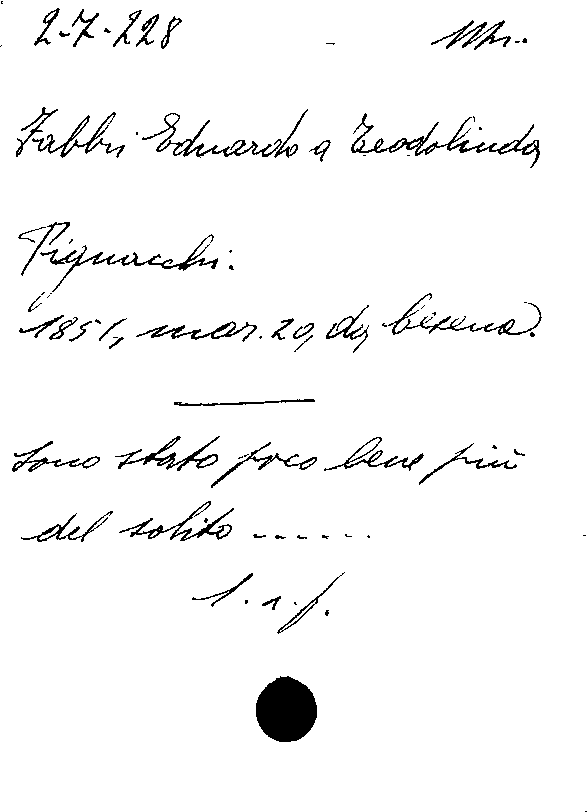 2-7-228 Ms.
Fabbri Eduardo a Teodolinda
Pignacchi.
1851, mar. 20, da Cesena.
Sono stato poco bene più
del solito ......
1. s. f.